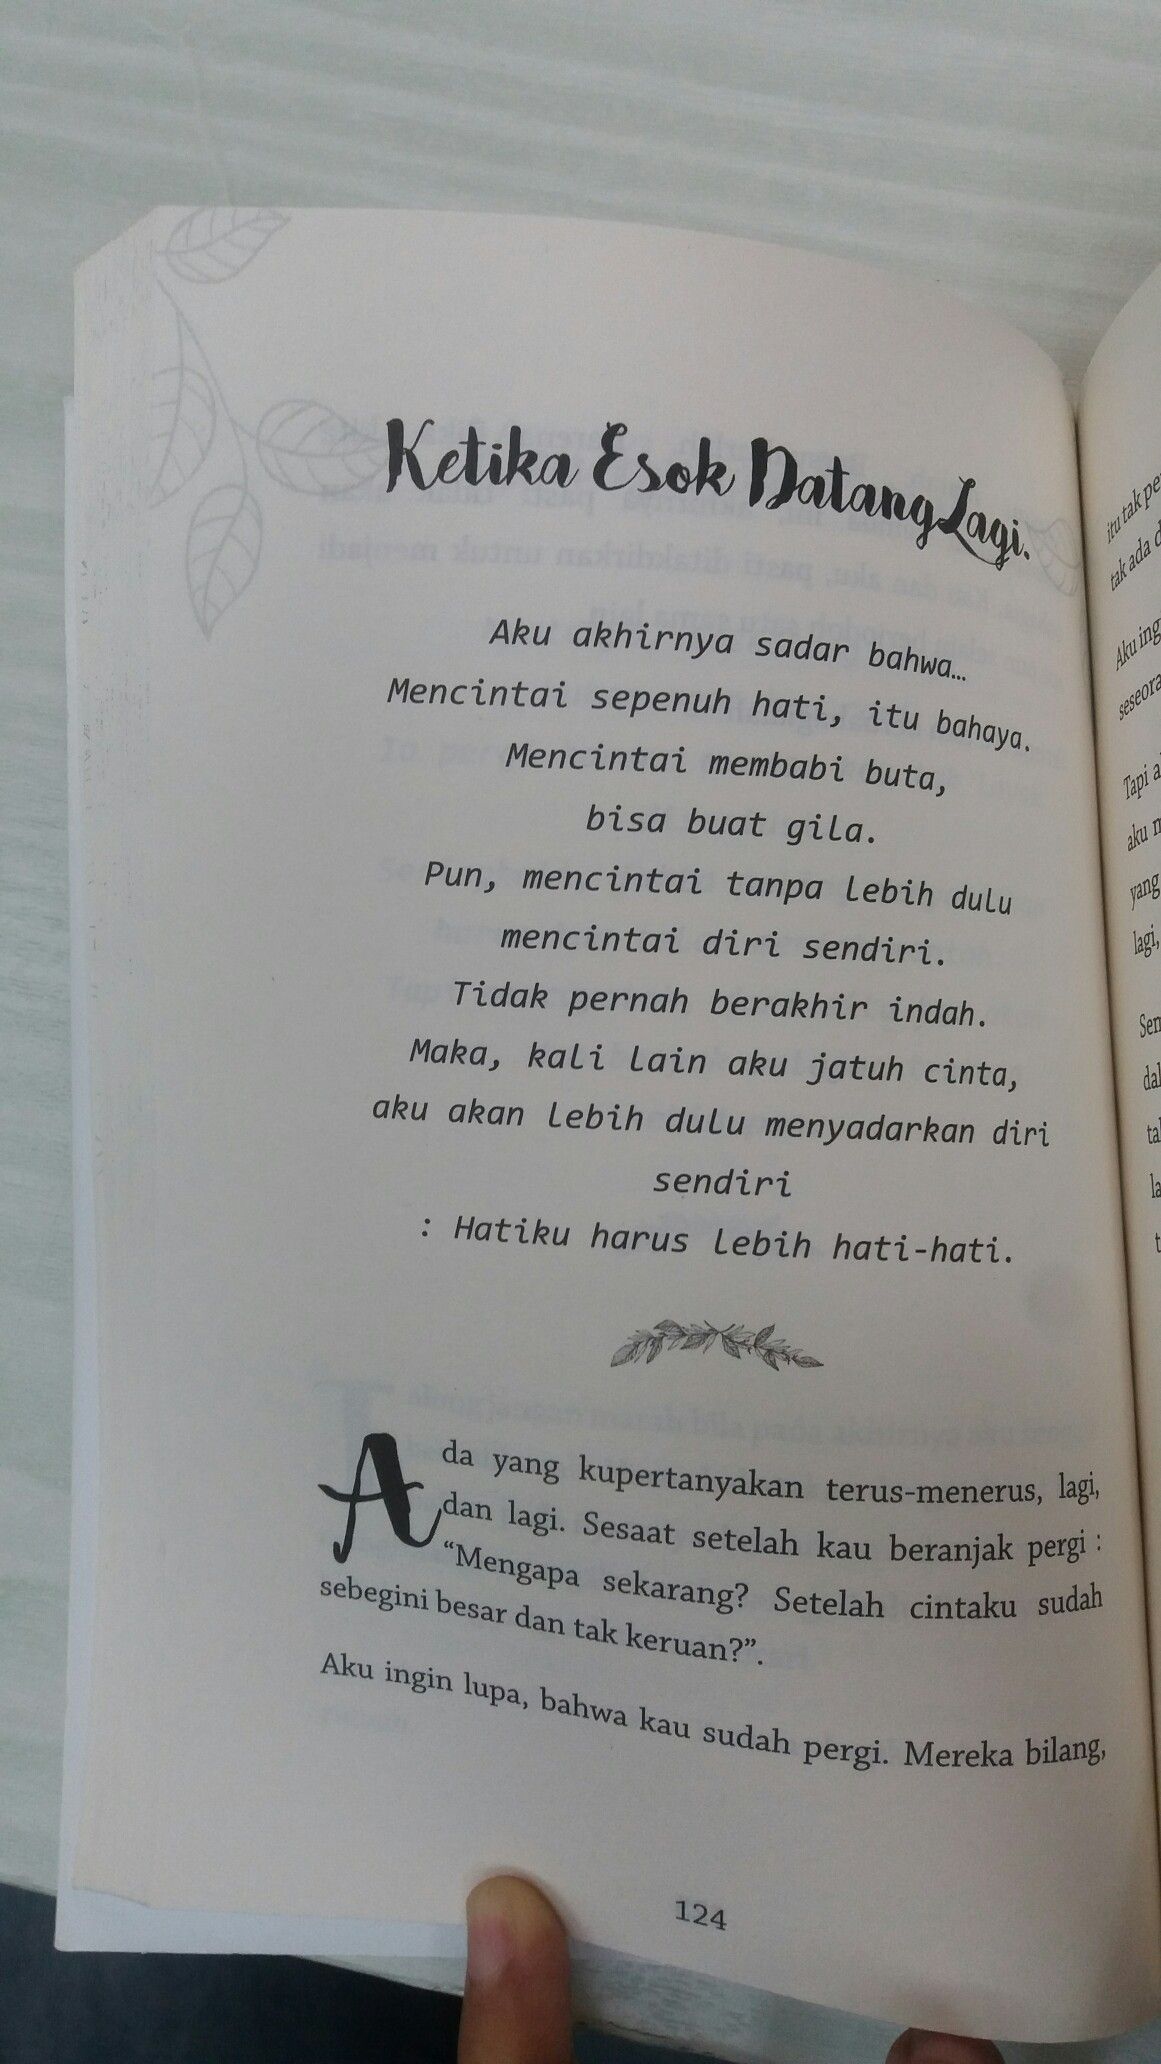 Ketika Esok Datang Lagi.
Aku akhirnya sadar bahwa...
Mencintai sepenuh hati, itu bahaya.
Mencintai membabi buta,
bisa buat gila.
Pun, mencintai tanpa lebih dulu
mencintai diri sendiri.
Tidak pernah berakhir indah.
Maka, kali lain aku jatuh cinta,
aku akan lebih dulu menyadarkan diri
sendiri
: Hatiku harus lebih hati-hati.
Ada yang kupertanyakan terus-menerus, lagi,
dan lagi. Sesaat setelah kau beranjak pergi :
“Mengapa sekarang? Setelah cintaku sudah
sebegini besar dan tak keruan?”.
Aku ingin lupa, bahwa kau sudah pergi. Mereka bilang,
124
itu tak
tak ada
Aku
Tapi
aku
yang
lagi,